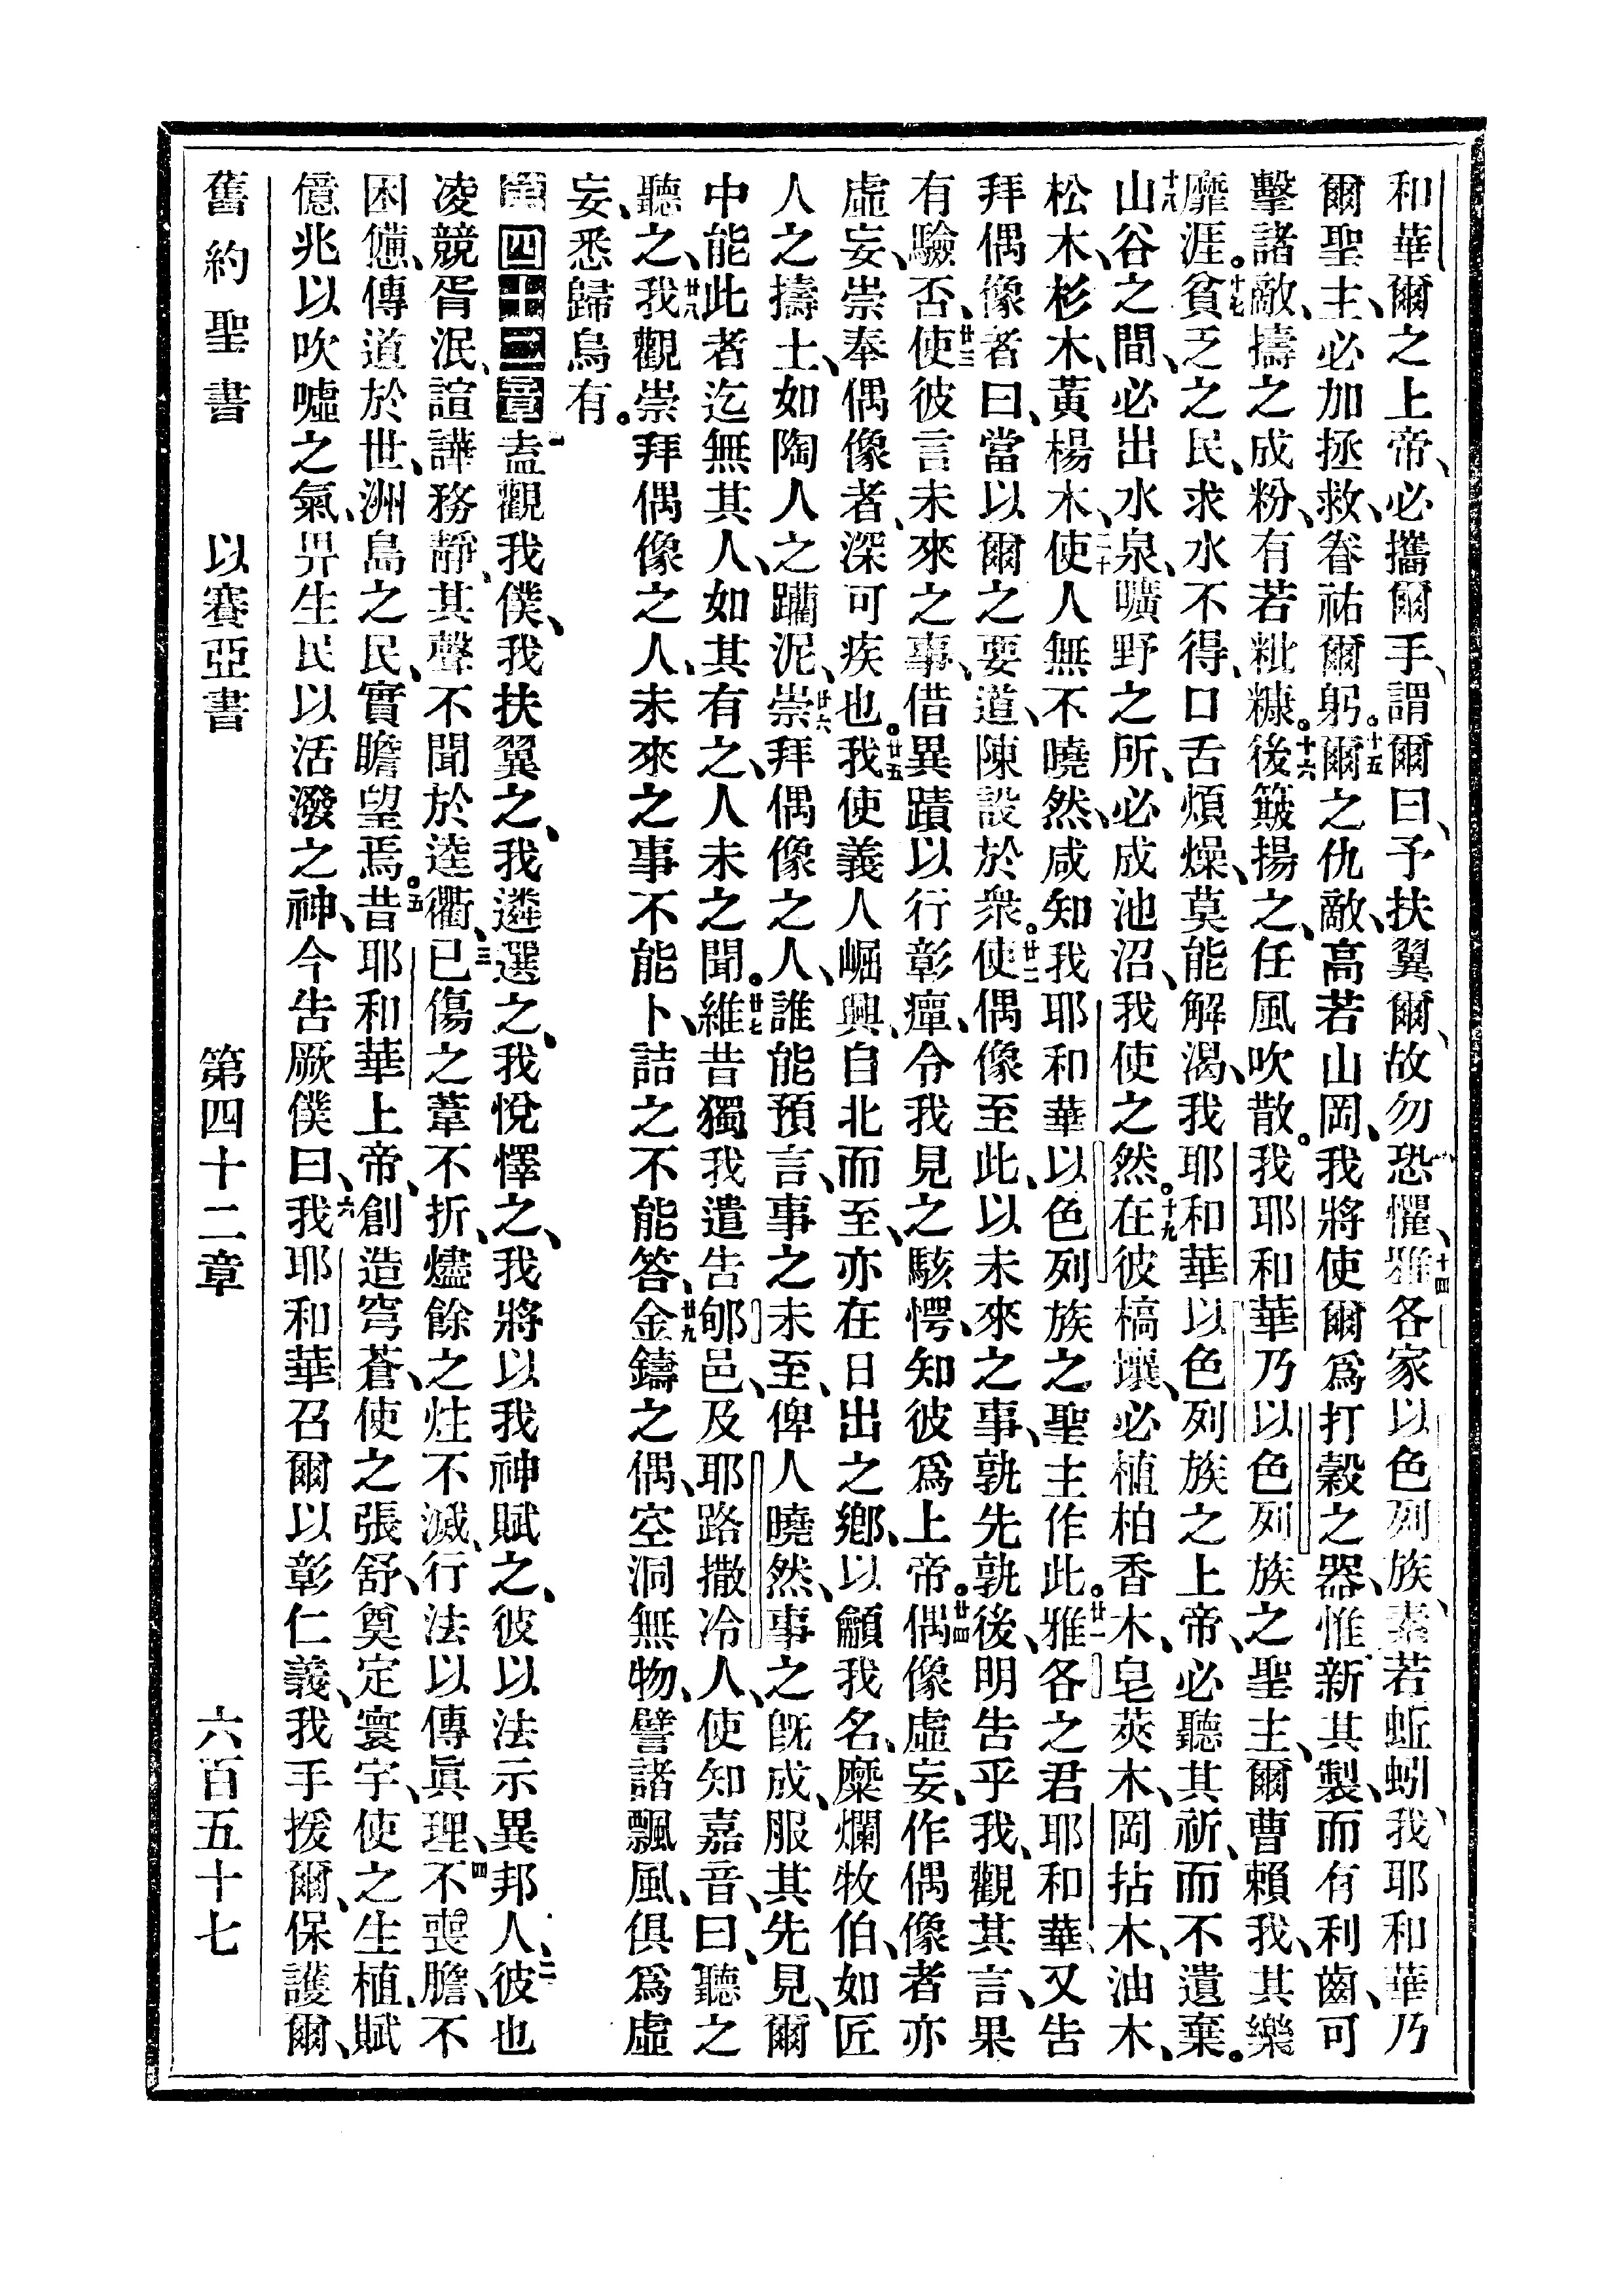 和華爾之上帝、必攜爾手、謂爾曰、予扶翼爾、故勿恐懼、十四雅各家以色列族、素若蚯蚓、我耶和華乃
爾聖主、必加拯救、眷祐爾躬。十五爾之仇敵、高若山岡、我將使爾爲打穀之器、惟新其製、而有利齒、可
擊諸敵、擣之成粉、有若粃糠。十六後簸揚之、任風吹散。我耶和華乃以色列族之聖主、爾曹賴我、其樂
靡涯。十七貧乏之民、求水不得、口舌煩燥、莫能解渴、我耶和華以色列族之上帝、必聽其祈、而不遺棄。
十八山谷之間、必出水泉、曠野之所、必成池沼、我使之然。十九在彼槁壤、必植柏香木、皂莢木、岡拈木、油木、
松木、杉木、黃楊木、二十使人無不曉然、咸知我耶和華以色列族之聖主作此。廿一雅各之君耶和華又告
拜偶像者曰、當以爾之要道、陳設於衆。廿二使偶像至此、以未來之事、孰先孰後、明告乎我、觀其言、果
有驗否、廿三使彼言未來之事、借異蹟以行彰癉、令我見之駭愕、知彼爲上帝。廿四偶像虛妄、作偶像者亦
虛妄、崇奉偶像者、深可疾也。廿五我使義人崛興、自北而至、亦在日出之鄉、以籲我名、糜爛牧伯、如匠
人之擣土、如陶人之躪泥、廿六崇拜偶像之人、誰能預言、事之未至、俾人曉然、事之旣成、服其先見、爾
中能此者迄無其人、如其有之、人未之聞。廿七維昔獨我遣告郇邑、及耶路撒冷人、使知嘉音、曰、聽之
聽之、廿八我觀崇拜偶像之人、未來之事不能卜、詰之不能答、廿九金鑄之偶、空洞無物、譬諸飄風、俱爲虛
妄、悉歸烏有。
第四十二章一盍觀我僕、我扶翼之、我遴選之、我悅懌之、我將以我神賦之、彼以法示異邦人、二彼也
凌競胥泯、諠譁務靜、其聲不聞於逵衢、三已傷之葦不折、燼餘之炷不滅、行法以傳眞理、四不喪膽、不
困憊、傳道於世、洲島之民、實瞻望焉。五昔耶和華上帝、創造穹蒼、使之張舒、奠定寰宇、使之生植、賦
億兆以吹噓之氣、畀生民以活潑之神、今告厥僕曰、六我耶和華召爾以彰仁義、我手援爾、保護爾、
舊約聖書　以賽亞書　第四十二章　六百五十七